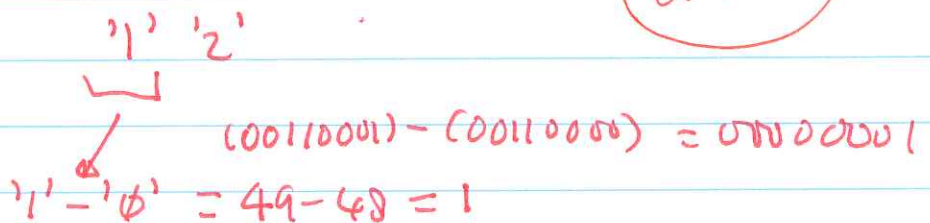 '1' '2'
(00110001) - (00110000) = 00000001
'1' - '0' = 49 - 48 = 1